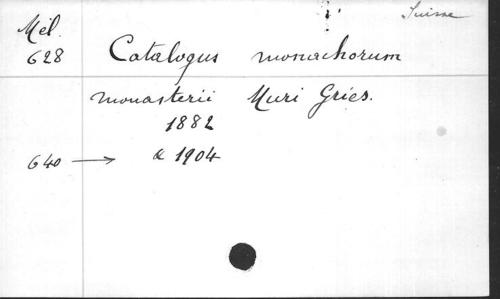 Suisse
Mél.
628
Catalogus monachorum
monasterii Muri Gries.
1882
640 → & 1904